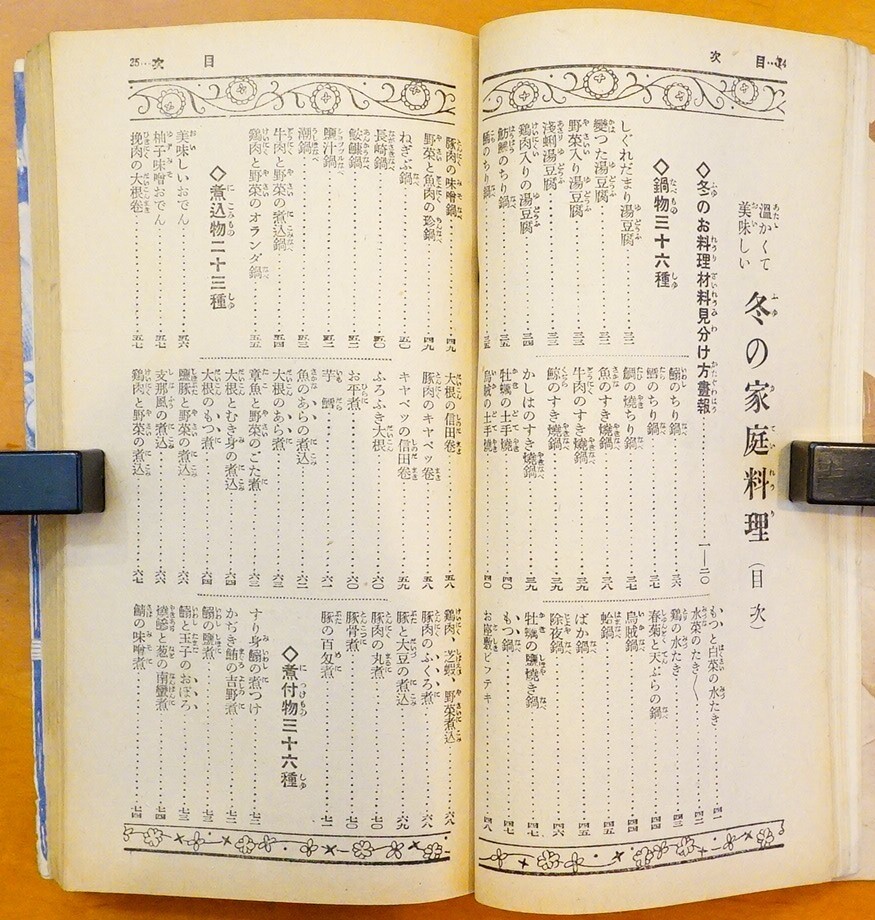 目次…24
温かくて
美味しい
冬の家庭料理(目次)
◇冬のお料理材料見分け方畫報……一—二〇
◇鍋物三十六種
しぐれだまり湯豆腐……三二
變つた湯豆腐……三二
野菜入り湯豆腐……三三
淺蜊湯豆腐……三三
鶏肉入りの湯豆腐……三四
魴鯡のちり鍋……三五
のちり鍋……三五
鰯のちり鍋……三六
鱈のちり鍋……三七
鯛の燒ちり鍋……三七
魚のすき燒鍋……三八
牛肉のすき燒鍋……三九
鯨のすき燒鍋……三九
かしはのすき燒鍋……三九
牡蠣の土手燒……四〇
烏賊の土手燒……四〇
もつと白菜の水たき……四一
水菜のたき〱……四二
鶏の水たき……四三
春菊と天ぷらの鍋……四四
烏賊鍋……四四
蛤鍋……四五
ばか鍋……四五
除夜鍋……四六
牡蠣の鹽燒き鍋……四七
もつ鍋……四七
お座敷ビフテキ……四八
25…目次
豚肉の味噌鍋……四九
野菜と魚肉の珍鍋……四九
ねぎぶ鍋……五〇
長崎鍋……五〇
鮟鱇鍋……五一
鹽汁鍋……五二
潮鍋……五三
牛肉と野菜の煮込鍋……五四
鶏肉と野菜のオランダ鍋……五五
◇煮込物二十三種
美味しいおでん……五六
柚子味噌おでん……五七
挽肉の大根卷……五七
大根の信田卷……五八
豚肉のキヤベツ卷……五八
キヤベツの信田卷……五九
ふろふき大根……六〇
お平煮……六〇
芋鱈……六一
魚のあらの煮込……六二
大根のあら煮……六三
章魚と野菜のごた煮……六三
大根とむき身の煮込……六四
大根のもつ煮……六四
鹽豚と野菜の煮込……六六
支那風の煮込……六六
鶏肉と野菜の煮込……六七
鶏肉、芝蝦、野菜煮込……六八
豚肉のふくろ煮……六八
豚と大豆の煮込……六九
豚肉の丸煮……七〇
豚骨煮……七〇
豚の百匁煮……七一
◇煮付物三十六種
すり身鰯の煮つけ……七二
かぢき鮪の吉野煮……七二
鰯の鹽煮……七三
鰯と玉子のおぼろ……七三
燒鯵と葱の南蠻煮……七四
鯖の味噌煮……七四